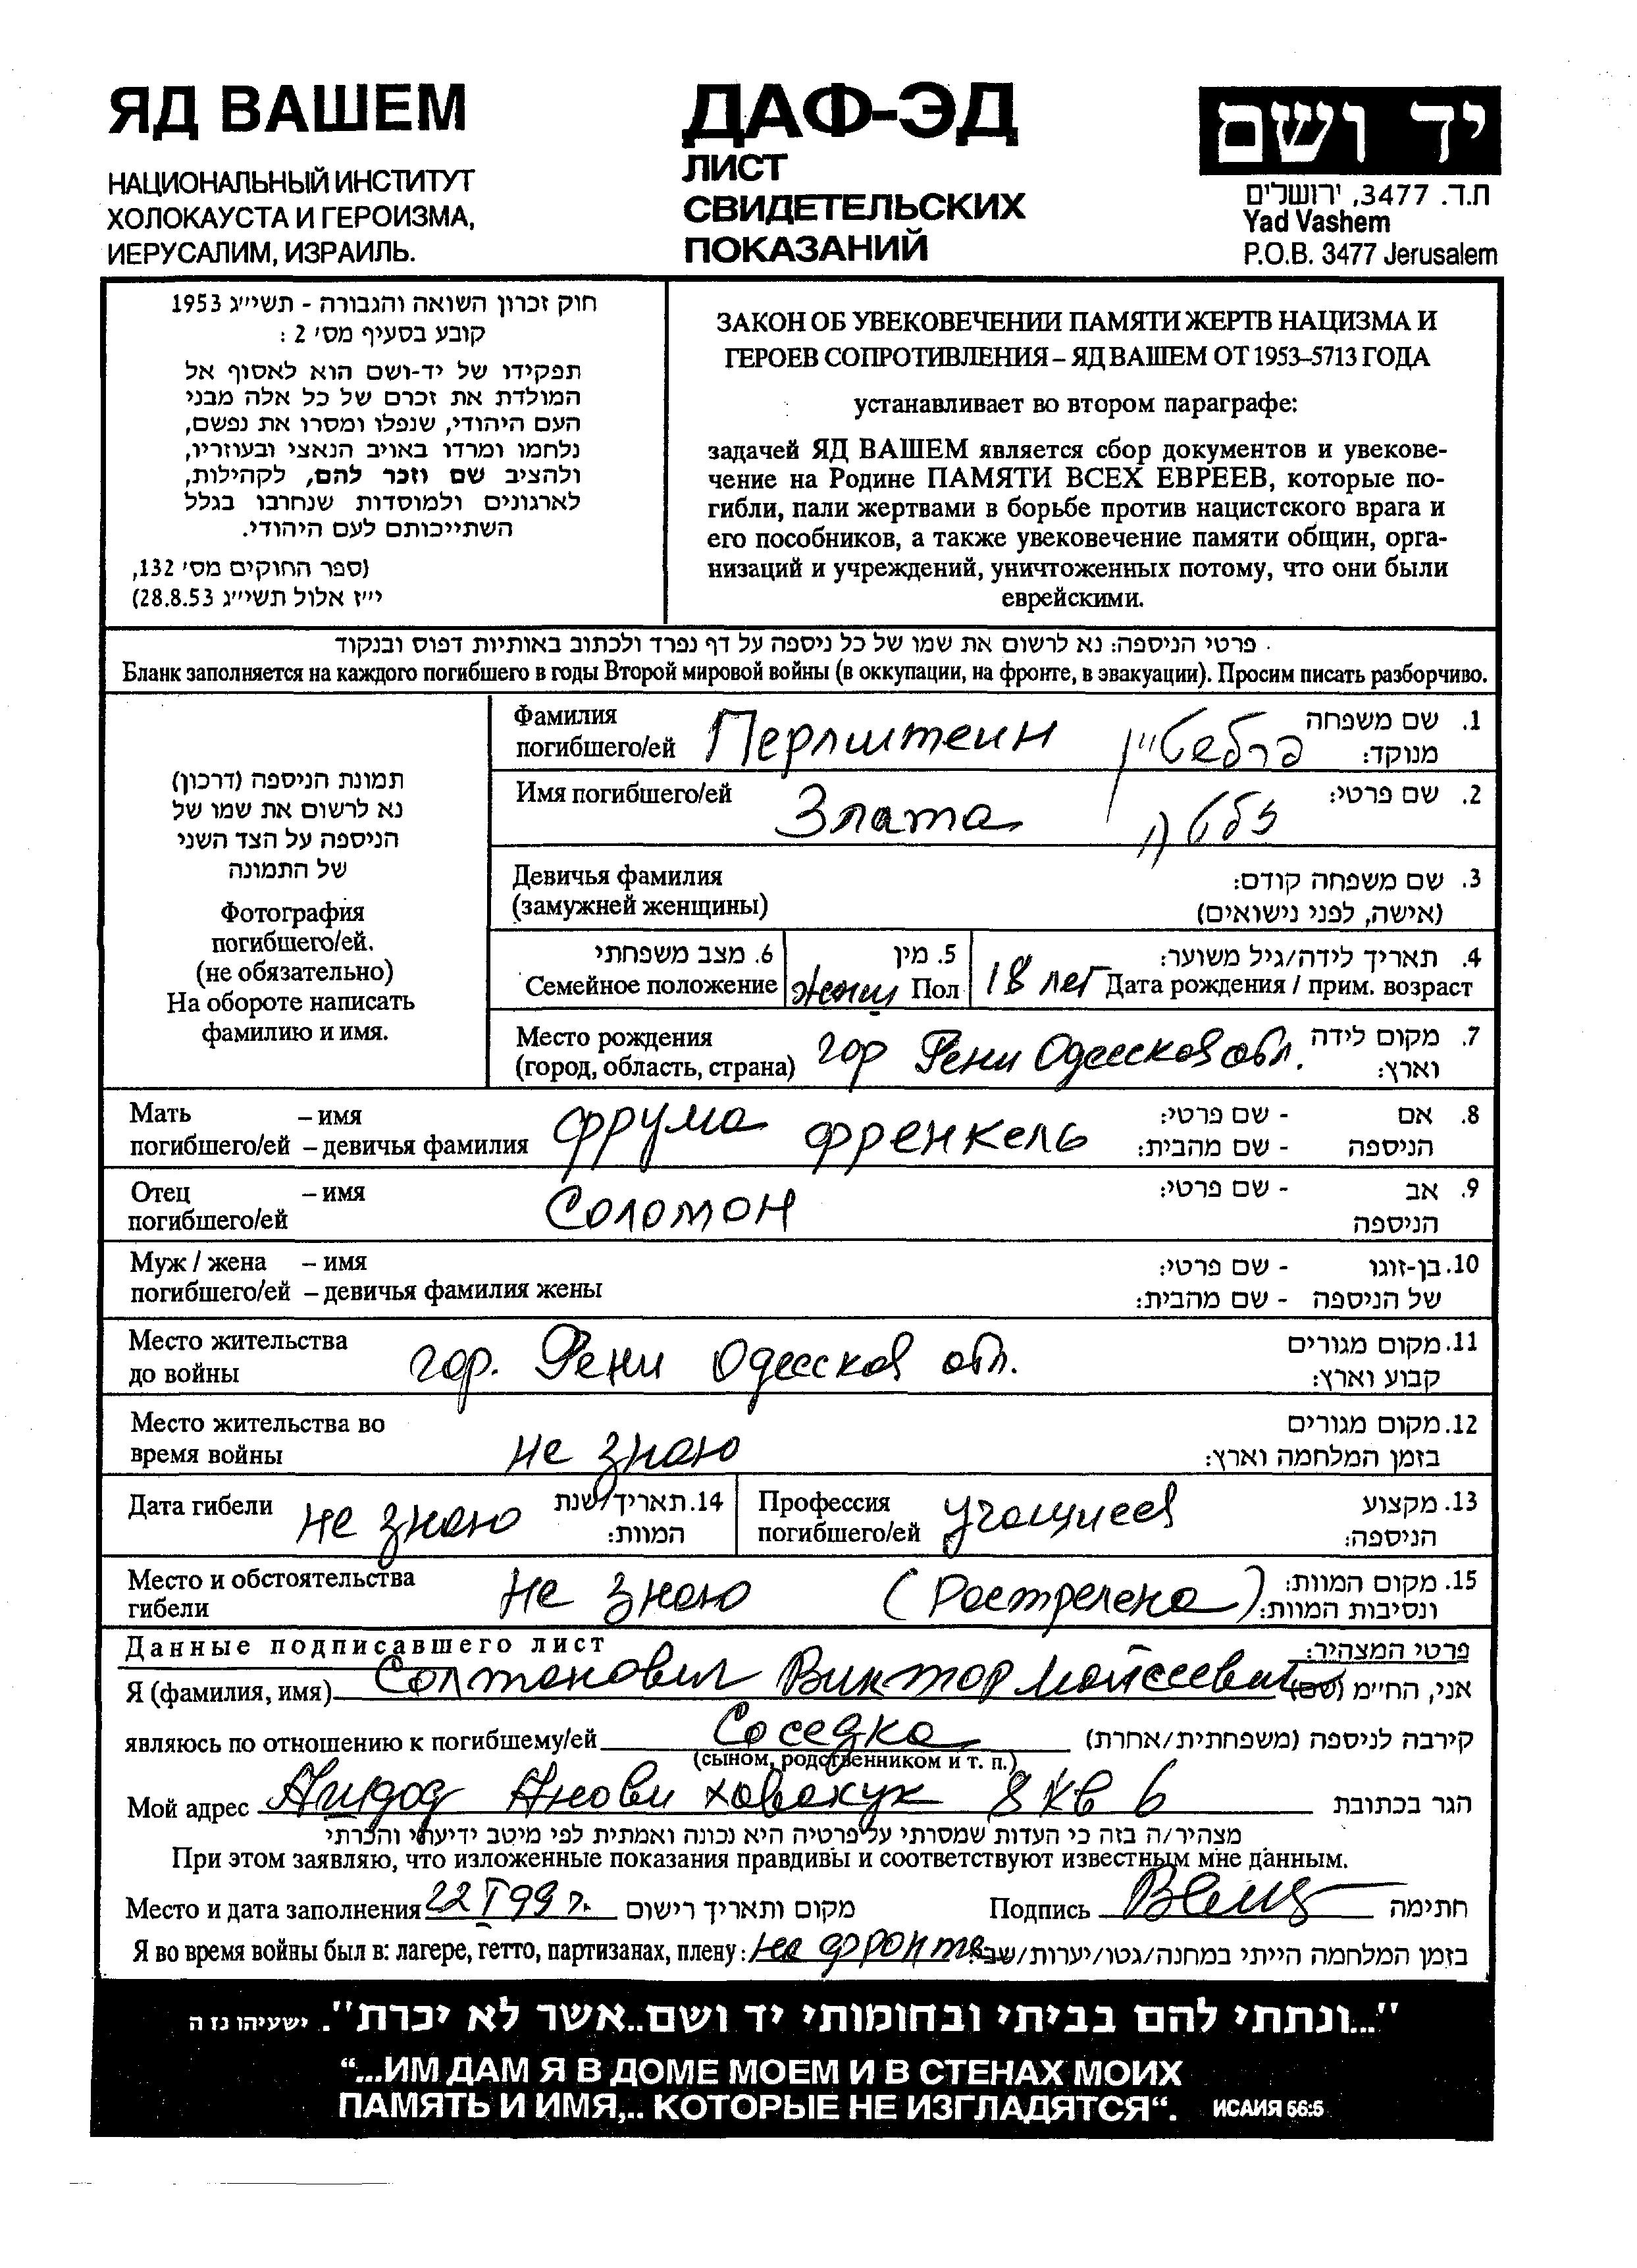 ЯД ВАШЕМ
НАЦИОНАЛЬНЫЙ ИНСТИТУТ
ХОЛОКАУСТА И ГЕРОИЗМА,
ИЕРУСАЛИМ, ИЗРАИЛЬ.
ДАФ-ЭД
ЛИСТ
СВИДЕТЕЛЬСКИХ
ПОКАЗАНИЙ
יד ושם
ת.ד. 3477, ירושלים
Yad Vashem
P.O.B. 3477 Jerusalem
חוק זכרון השואה והגבורה - תשי״ג 1953
קובע בסעיף מס׳ 2 :
תפקידו של יד-ושם הוא לאסוף אל
המולדת את זכרם של כל אלה מבני
העם היהודי, שנפלו ומסרו את נפשם,
נלחמו ומרדו באויב הנאצי ובעוזריו,
ולהציב שם וזכר להם, לקהילות,
לארגונים ולמוסדות שנחרבו בגלל
השתייכותם לעם היהודי.
(ספר החוקים מס׳ 132,
י״ז אלול תשי״ג 28.8.53)
ЗАКОН ОБ УВЕКОВЕЧЕНИИ ПАМЯТИ ЖЕРТВ НАЦИЗМА И
ГЕРОЕВ СОПРОТИВЛЕНИЯ – ЯД ВАШЕМ ОТ 1953–5713 ГОДА
устанавливает во втором параграфе:
задачей ЯД ВАШЕМ является сбор документов и увекове-
чение на Родине ПАМЯТИ ВСЕХ ЕВРЕЕВ, которые по-
гибли, пали жертвами в борьбе против нацистского врага и
его пособников, а также увековечение памяти общин, орга-
низаций и учреждений, уничтоженных потому, что они были
еврейскими.
פרטי הניספה: נא לרשום את שמו של כל ניספה על דף נפרד ולכתוב באותיות דפוס ובנקוד
Бланк заполняется на каждого погибшего в годы Второй мировой войны (в оккупации, на фронте, в эвакуации). Просим писать разборчиво.
תמונת הניספה (דרכון)
נא לרשום את שמו של
הניספה על הצד השני
של התמונה
Фотография
погибшего/ей.
(не обязательно)
На обороте написать
фамилию и имя.
Фамилия Перлштеин פרלשטיין שם משפחה .1
погибшего/ей מנוקד:
Имя погибшего/ей Злата זלטה שם פרטי: .2
Девичья фамилия שם משפחה קודם: .3
(замужней женщины) (אישה, לפני נישואים)
6. מצב משפחתי 5. מין תאריך לידה/גיל משוער: .4
Семейное положение женш Пол 18 лет Дата рождения / прим. возраст
Место рождения гор Рени Одесской обл. מקום לידה .7
(город, область, страна) וארץ:
Мать – имя Фрума Френкель - שם פרטי: אם .8
погибшего/ей – девичья фамилия - שם מהבית: הניספה
Отец – имя Соломон - שם פרטי: אב .9
погибшего/ей הניספה
Муж / жена – имя - שם פרטי: בן-זוגו .10
погибшего/ей – девичья фамилия жены - שם מהבית: של הניספה
Место жительства гор. Рени Одесской обл. מקום מגורים .11
до войны קבוע וארץ:
Место жительства во не знаю מקום מגורים .12
время войны בזמן המלחמה וארץ:
Дата гибели не знаю 14. תאריך/שנת Профессия учащиеся מקצוע .13
המוות: погибшего/ей הניספה:
Место и обстоятельства не знаю (Растрелена) מקום המוות: .15
гибели ונסיבות המוות:
Данные подписавшего лист פרטי המצהיר:
Я (фамилия, имя) Солтанович Виктор Мойсеевич אני, החי״מ (שם)
являюсь по отношению к погибшему/ей Соседка קירבה לניספה (משפחתית/אחרת)
(сыном, родственником и т. п.)
Мой адрес Ашдод Анови Хавакук 8 кв 6 הגר בכתובת
מצהיר/ה בזה כי העדות שמסרתי על פרטיה היא נכונה ואמתית לפי מיטב ידיעתי והכרתי
При этом заявляю, что изложенные показания правдивы и соответствуют известным мне данным.
Место и дата заполнения 22 I 99 г. מקום ותאריך רישום Подпись חתימה
Я во время войны был в: лагере, гетто, партизанах, плену: на фронте בזמן המלחמה הייתי במחנה/גטו/יערות/שבי
"...ונתתי להם בביתי ובחומותי יד ושם..אשר לא יכרת". ישעיהו נז ה
“...ИМ ДАМ Я В ДОМЕ МОЕМ И В СТЕНАХ МОИХ
ПАМЯТЬ И ИМЯ,.. КОТОРЫЕ НЕ ИЗГЛАДЯТСЯ“. ИСАИЯ 56:5